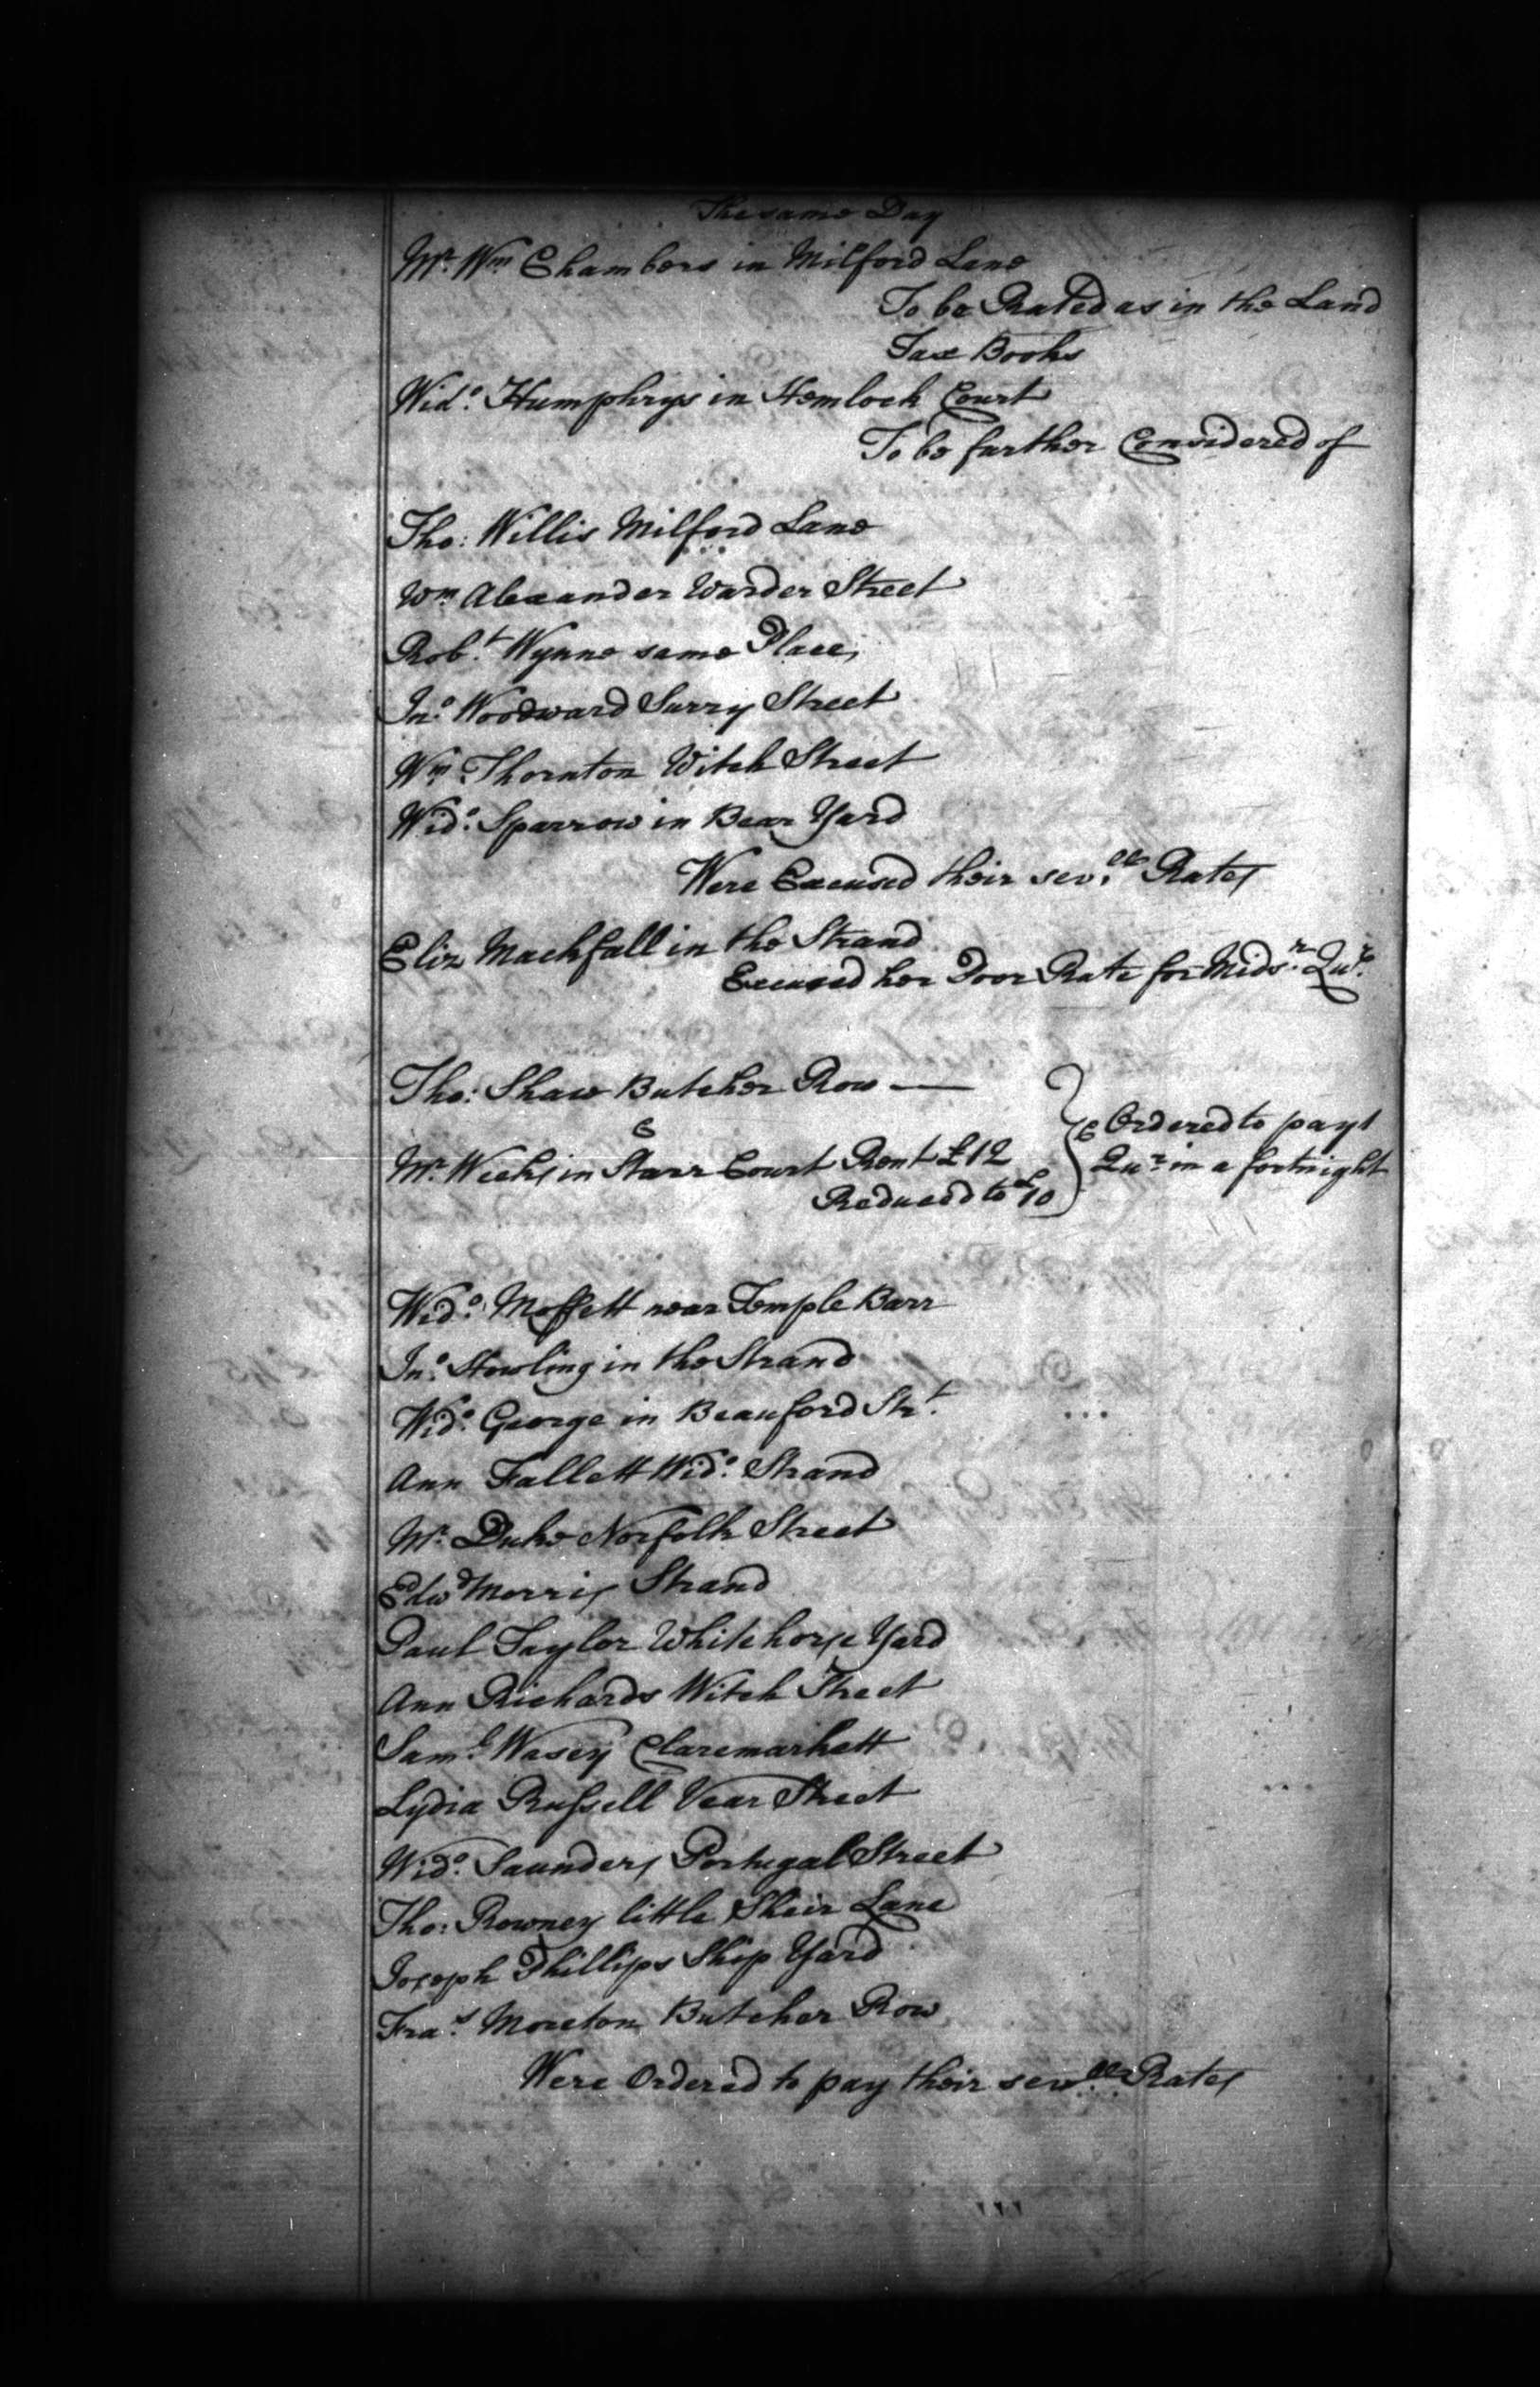 The same Day
Mr. Wm Chambers in Milford Lane
To be Rated as in the Land
Tax Books
Wido. Humphrys in Hemlock Court
To be further Considered of
Tho: Willis Milford Lane
Wm Alexander Warder Street
Robt. Wynne same Place,
Jno. Woodward Surry Street
Wm. Thornton Witch Street
Wido. Sparrow in Bear Yard
Were Excused their sev.all Rates
Eliz Mackfall in the Strand
Excused her Poor Rate for Midsr. Qur.
Tho: Shaw Butcher Row —
&
Mr. Weeks in Starr Court Rent £12
Reduced to £10
& Ordered to pay 1
Qur in a fortnight
Wido. Moffett near Temple Barr
Jno. Stowling in the Strand
Wido. George in Beauford Strt.
Ann Fallett Wido. Strand
Mr. Duke Norfolk Street
Edwd Morris Strand
Paul Taylor Whitehorse Yard
Ann Richards Witch Street
Saml. Wasey Claremarkett
Lydia Russell Vear Street
Wido. Saunders Portugal Street
Tho: Rowney little Sheir Lane
Joseph Phillips Ship Yard
Fras. Moreton Butcher Row
Were Ordered to pay their sevall Rates